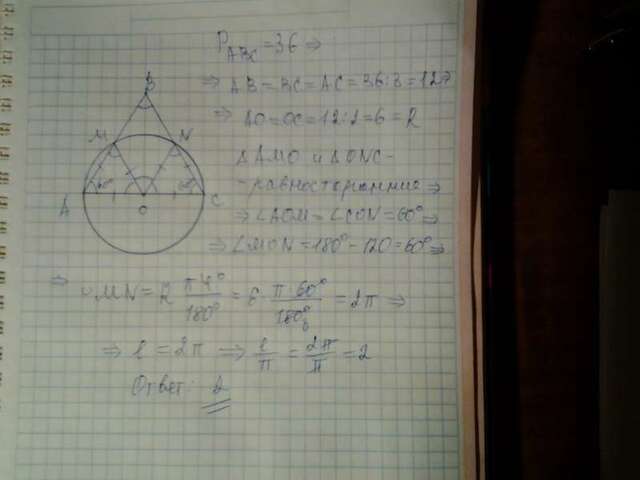 P_ABC = 36 ⇒
⇒ AB = BC = AC = 36 : 3 = 12 ⇒
⇒ AO = OC = 12 : 2 = 6 = R
△AMO и △ONC -
- равносторонние ⇒
⇒ ∠AOM = ∠CON = 60° ⇒
⇒ ∠MON = 180° - 120 = 60° ⇒
B
M N
60° 60°
A O C
⇒ ◡MN = R π·4° / 180° = 6 · π·60° / 180° = 2π ⇒
⇒ l = 2π ⇒ l/π = 2π/π = 2
Ответ: 2